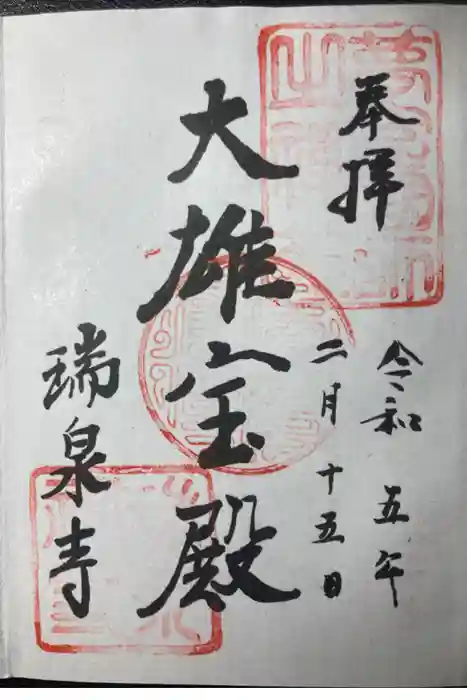 奉拝
令和五年
二月十五日
大雄宝殿
瑞泉寺